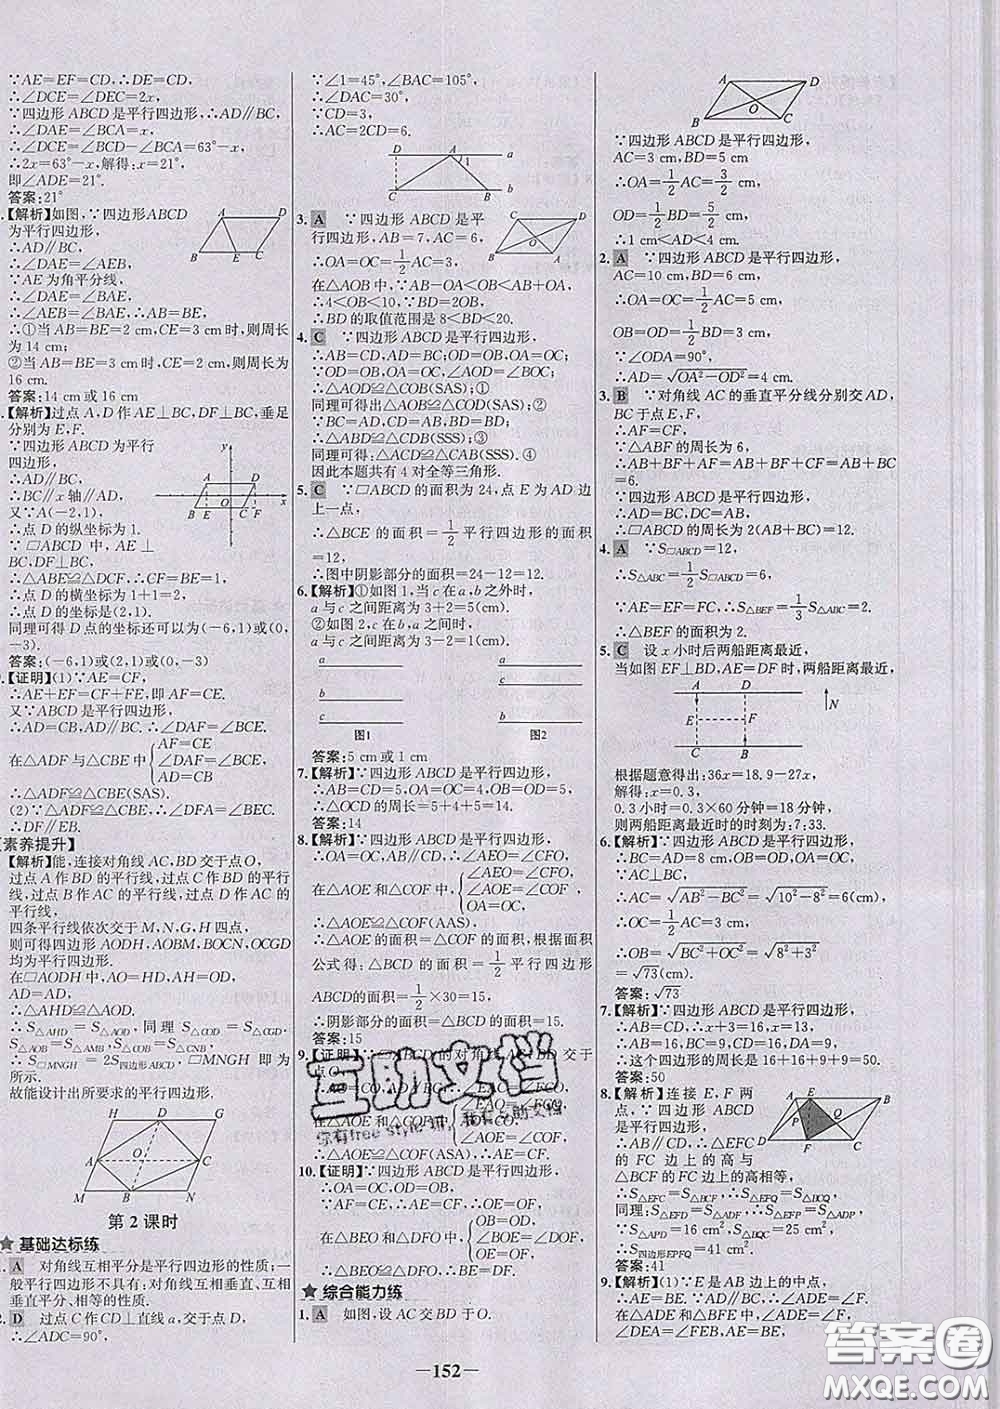 ∵AE=EF=CD,∴DE=CD,
∴∠DCE=∠DEC=2x,
∵四边形ABCD是平行四边形,∴AD∥BC,
∴∠DAE=∠BCA=x,
∴∠DCE=∠BCD-∠BCA=63°-x,
∴2x=63°-x,解得:x=21°,
即∠ADE=21°.
答案:21°
【解析】如图,∵四边形ABCD
为平行四边形,
∴AD∥BC,
∴∠DAE=∠AEB,
∵AE为角平分线,
∴∠DAE=∠BAE,
∴∠AEB=∠BAE,∴AB=BE,
∴①当AB=BE=2 cm,CE=3 cm时,则周长
为14 cm;
②当AB=BE=3 cm时,CE=2 cm,则周长为
16 cm.
答案:14 cm或16 cm
【解析】过点A,D作AE⊥BC,DF⊥BC,垂足
分别为E,F.
∵四边形ABCD为平行
四边形,
∴AD∥BC,
∴BC∥x轴∥AD,
又∵A(-2,1),
∴点D的纵坐标为1.
∵▱ABCD中,AE⊥
BC,DF⊥BC,
∴△ABE≌△DCF,∴CF=BE=1,
∴点D的横坐标为1+1=2,
∴点D的坐标是(2,1).
同理可得D点的坐标还可以为(-6,1)或(0,
-3).
答案:(-6,1)或(2,1)或(0,-3)
【证明】(1)∵AE=CF,
∴AE+EF=CF+FE,即AF=CE.
又∵ABCD是平行四边形,
∴AD=CB,AD∥BC.∴∠DAF=∠BCE.
在△ADF与△CBE中{AF=CE
∠DAF=∠BCE,
AD=CB
∴△ADF≌△CBE(SAS).
(2)∵△ADF≌△CBE,∴∠DFA=∠BEC.
∴DF∥EB.
【素养提升】
【解析】能,连接对角线AC,BD交于点O,
过点A作BD的平行线,过点C作BD的平行
线,过点B作AC的平行线,过点D作AC的
平行线,
四条平行线依次交于M,N,G,H四点,
则可得四边形AODH,AOBM,BOCN,OCGD
均为平行四边形.
在▱AODH中,AO=HD,AH=OD,
AD=AD,
∴△AHD≌△AOD.
∴S△AHD=S△AOD,同理S△COD=S△CGD,
S△AOB=S△AMB,S△COB=S△CNB,
∴S▱MNGH=2S四边形ABCD,▱MNGH即为
所示.
故能设计出所要求的平行四边形.
H D G
A O C
M B N
第2课时
★基础达标练
1. A 对角线互相平分是平行四边形的性质;一
般平行四边形不具有:对角线互相垂直、互相
垂直平分、相等的性质.
2. D 过点C作CD⊥直线a,交a于点D,
∴∠ADC=90°,
∵∠1=45°,∠BAC=105°,
∴∠DAC=30°,
∵CD=3,
∴AC=2CD=6.
D A a
1
C B b
3. A ∵四边形ABCD是平
行四边形,AB=7,AC=6,
∴OA=OC=½AC=3,
在△AOB中,∵AB-OA<OB<AB+OA,
∴4<OB<10,∵BD=2OB,
∴BD的取值范围是8<BD<20.
4. C ∵四边形ABCD是平行四边形,
∴AB=CD,AD=BC;OD=OB,OA=OC;
∵OD=OB,OA=OC,∠AOD=∠BOC;
∴△AOD≌△COB(SAS);①
同理可得出△AOB≌△COD(SAS);②
∵BC=AD,CD=AB,BD=BD;
∴△ABD≌△CDB(SSS);③
同理可得:△ACD≌△CAB(SSS).④
因此本题共有4对全等三角形.
5. C ∵▱ABCD的面积为24,点E为AD边
上一点,
∴△BCE的面积=½平行四边形的面积
=12,
∴图中阴影部分的面积=24-12=12.
6.【解析】①如图1,当c在a,b之外时,
a与c之间距离为3+2=5(cm).
②如图2,c在b,a之间时,
a与c之间距离为3-2=1(cm).
a a
b c
c b
图1 图2
答案:5 cm或1 cm
7.【解析】∵四边形ABCD是平行四边形,
∴AB=CD=5,OA=OC=4,OB=OD=5,
∴△OCD的周长=5+4+5=14,
答案:14
8.【解析】∵四边形ABCD是平行四边形,
∴OA=OC,AD∥BC,∴∠AEO=∠CFO,
在△AOE和△COF中,{∠AEO=∠CFO,
∠AOE=∠COF,
OA=OC,
∴△AOE≌△COF(AAS),
∴△AOE的面积=△COF的面积,根据面积
公式得:△BCD的面积=½平行四边形
ABCD的面积=½×30=15,
∴阴影部分的面积=△BCD的面积=15.
答案:15
9.【证明】∵▱ABCD的对角线AC,BD交于
点O,
∠AOE=∠COF,
∴△AOE≌△COF(ASA),∴OE=OF.
10.【证明】∵四边形ABCD是平行四边形,
∴OA=OC,OB=OD,
∵AF=CE,∴AE=CF,∴OE=OF,
在△BEO和△DFO中,{OB=OD,
∠BOE=∠DOF,
OE=OF,
∴△BEO≌△DFO,∴BE=DF.
★综合能力练
1. A 如图,设AC交BD于O.
A D
O
B C
∵四边形ABCD是平行四边形,
AC=3 cm,BD=5 cm,
∴OA=½AC=3/2 cm,
OD=½BD=5/2 cm,
∴1 cm<AD<4 cm.
2. A ∵四边形ABCD是平行四边形,
AC=10 cm,BD=6 cm,
∴OA=OC=½AC=5 cm,
OB=OD=½BD=3 cm,
∵∠ODA=90°,
∴AD=√(OA²-OD²)=4 cm.
3. B ∵对角线AC的垂直平分线分别交AD,
BC于点E,F,
∴AF=CF,
∵△ABF的周长为6,
∴AB+BF+AF=AB+BF+CF=AB+BC
=6.
∵四边形ABCD是平行四边形,
∴AD=BC,AB=CD,
∴▱ABCD的周长为2(AB+BC)=12.
4. A ∵S▱ABCD=12,
∴S△ABC=½S▱ABCD=6,
∵AE=EF=FC,∴S△BEF=⅓S△ABC,
∴△BEF的面积为2.
5. C 设x小时后两船距离最近,
当如图EF⊥BD,AE=DF时,两船距离最近,
A D N
E F
C B
根据题意得出:36x=18.9-27x,
解得:x=0.3,
0.3小时=0.3×60分钟=18分钟,
则两船距离最近时的时刻为:7:33.
6.【解析】∵四边形ABCD是平行四边形,
∴BC=AD=8 cm,OA=OC=½AC,
∵AC⊥BC,
∴AC=√(AB²-BC²)=√(10²-8²)=6(cm),
∴OC=½AC=3 cm,
∴OB=√(BC²+OC²)=√(8²+3²)
=√73(cm).
答案:√73
7.【解析】∵四边形ABCD是平行四边形,
∴AB=CD,AD=BC;x+3=16,x=13,
∴AB=16,BC=9,CD=16,DA=9,
∴这个四边形的周长是16+16+9+9=50.
答案:50
8.【解析】连接E,F两
点,∵四边形ABCD
是平行四边形,
∴AB∥CD,∴△EFC
的FC边上的高与
△BCF的FC边上的高相等,
∴S△EFC=S△BCF,∴S△EFQ=S△BCQ,
同理:S△EFD=S△ADF,∴S△EFP=S△ADP,
∵S△APD=16 cm²,S△BQC=25 cm²,
∴S四边形EPFQ=41 cm².
答案:41
9.【解析】(1)∵E是AB边上的中点,
∴AE=BE.∵AD∥BC,∴∠ADE=∠F.
在△ADE和△BFE中,∠ADE=∠F,
∠DEA=∠FEB,AE=BE,
—152—
互助文档
答案圈
MXQE.COM